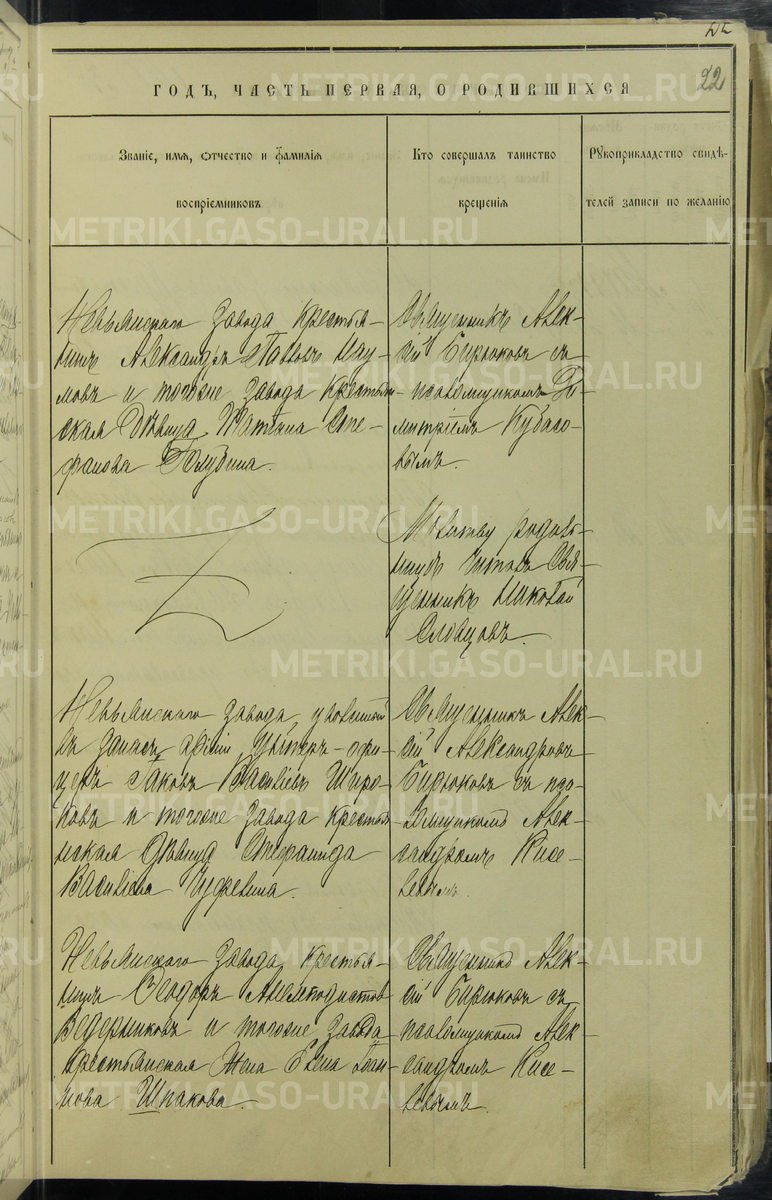 22
ГОДЪ, ЧАСТЬ ПЕРВАЯ, О РОДИВШИХСЯ
Званіе, имя, отчество и фамилія
воспріемниковъ
Кто совершалъ таинство
крещенія
Рукоприкладство свидѣ-
телей записи по желанію
Невьянскаго завода крестья-
нинъ Александръ Павловъ Нау-
мовъ и тогоже завода крестьян-
ская дѣвица Татіана Сте-
фанова Голубина.
Священникъ Алек-
сій Бирюковъ съ
псаломщикомъ Ди-
митріемъ
вымъ.
Молитву родиль-
ницѣ читалъ Свя-
щенникъ Николай
Словцовъ.
Невьянскаго завода, уволенный
въ запасъ арміи унтеръ-офи-
церъ Іаковъ Василіевъ Широ-
ковъ и тогоже завода крестья-
нская дѣвица Стефанида
Василіева
Священникъ Алек-
сій Александровъ
Бирюковъ съ пса-
ломщикомъ Алек-
сандромъ Кисе-
левымъ.
Невьянскаго завода, крестья-
нинъ Ѳеодоръ Анемподистовъ
Ведерниковъ и тогоже завода
крестьянская жена Елена Іоан-
нова Шпакова.
Священникъ Алек-
сій Бирюковъ съ
псаломщикомъ Алек-
сандромъ Кисе-
левымъ.
METRIKI.GASO-URAL.RU